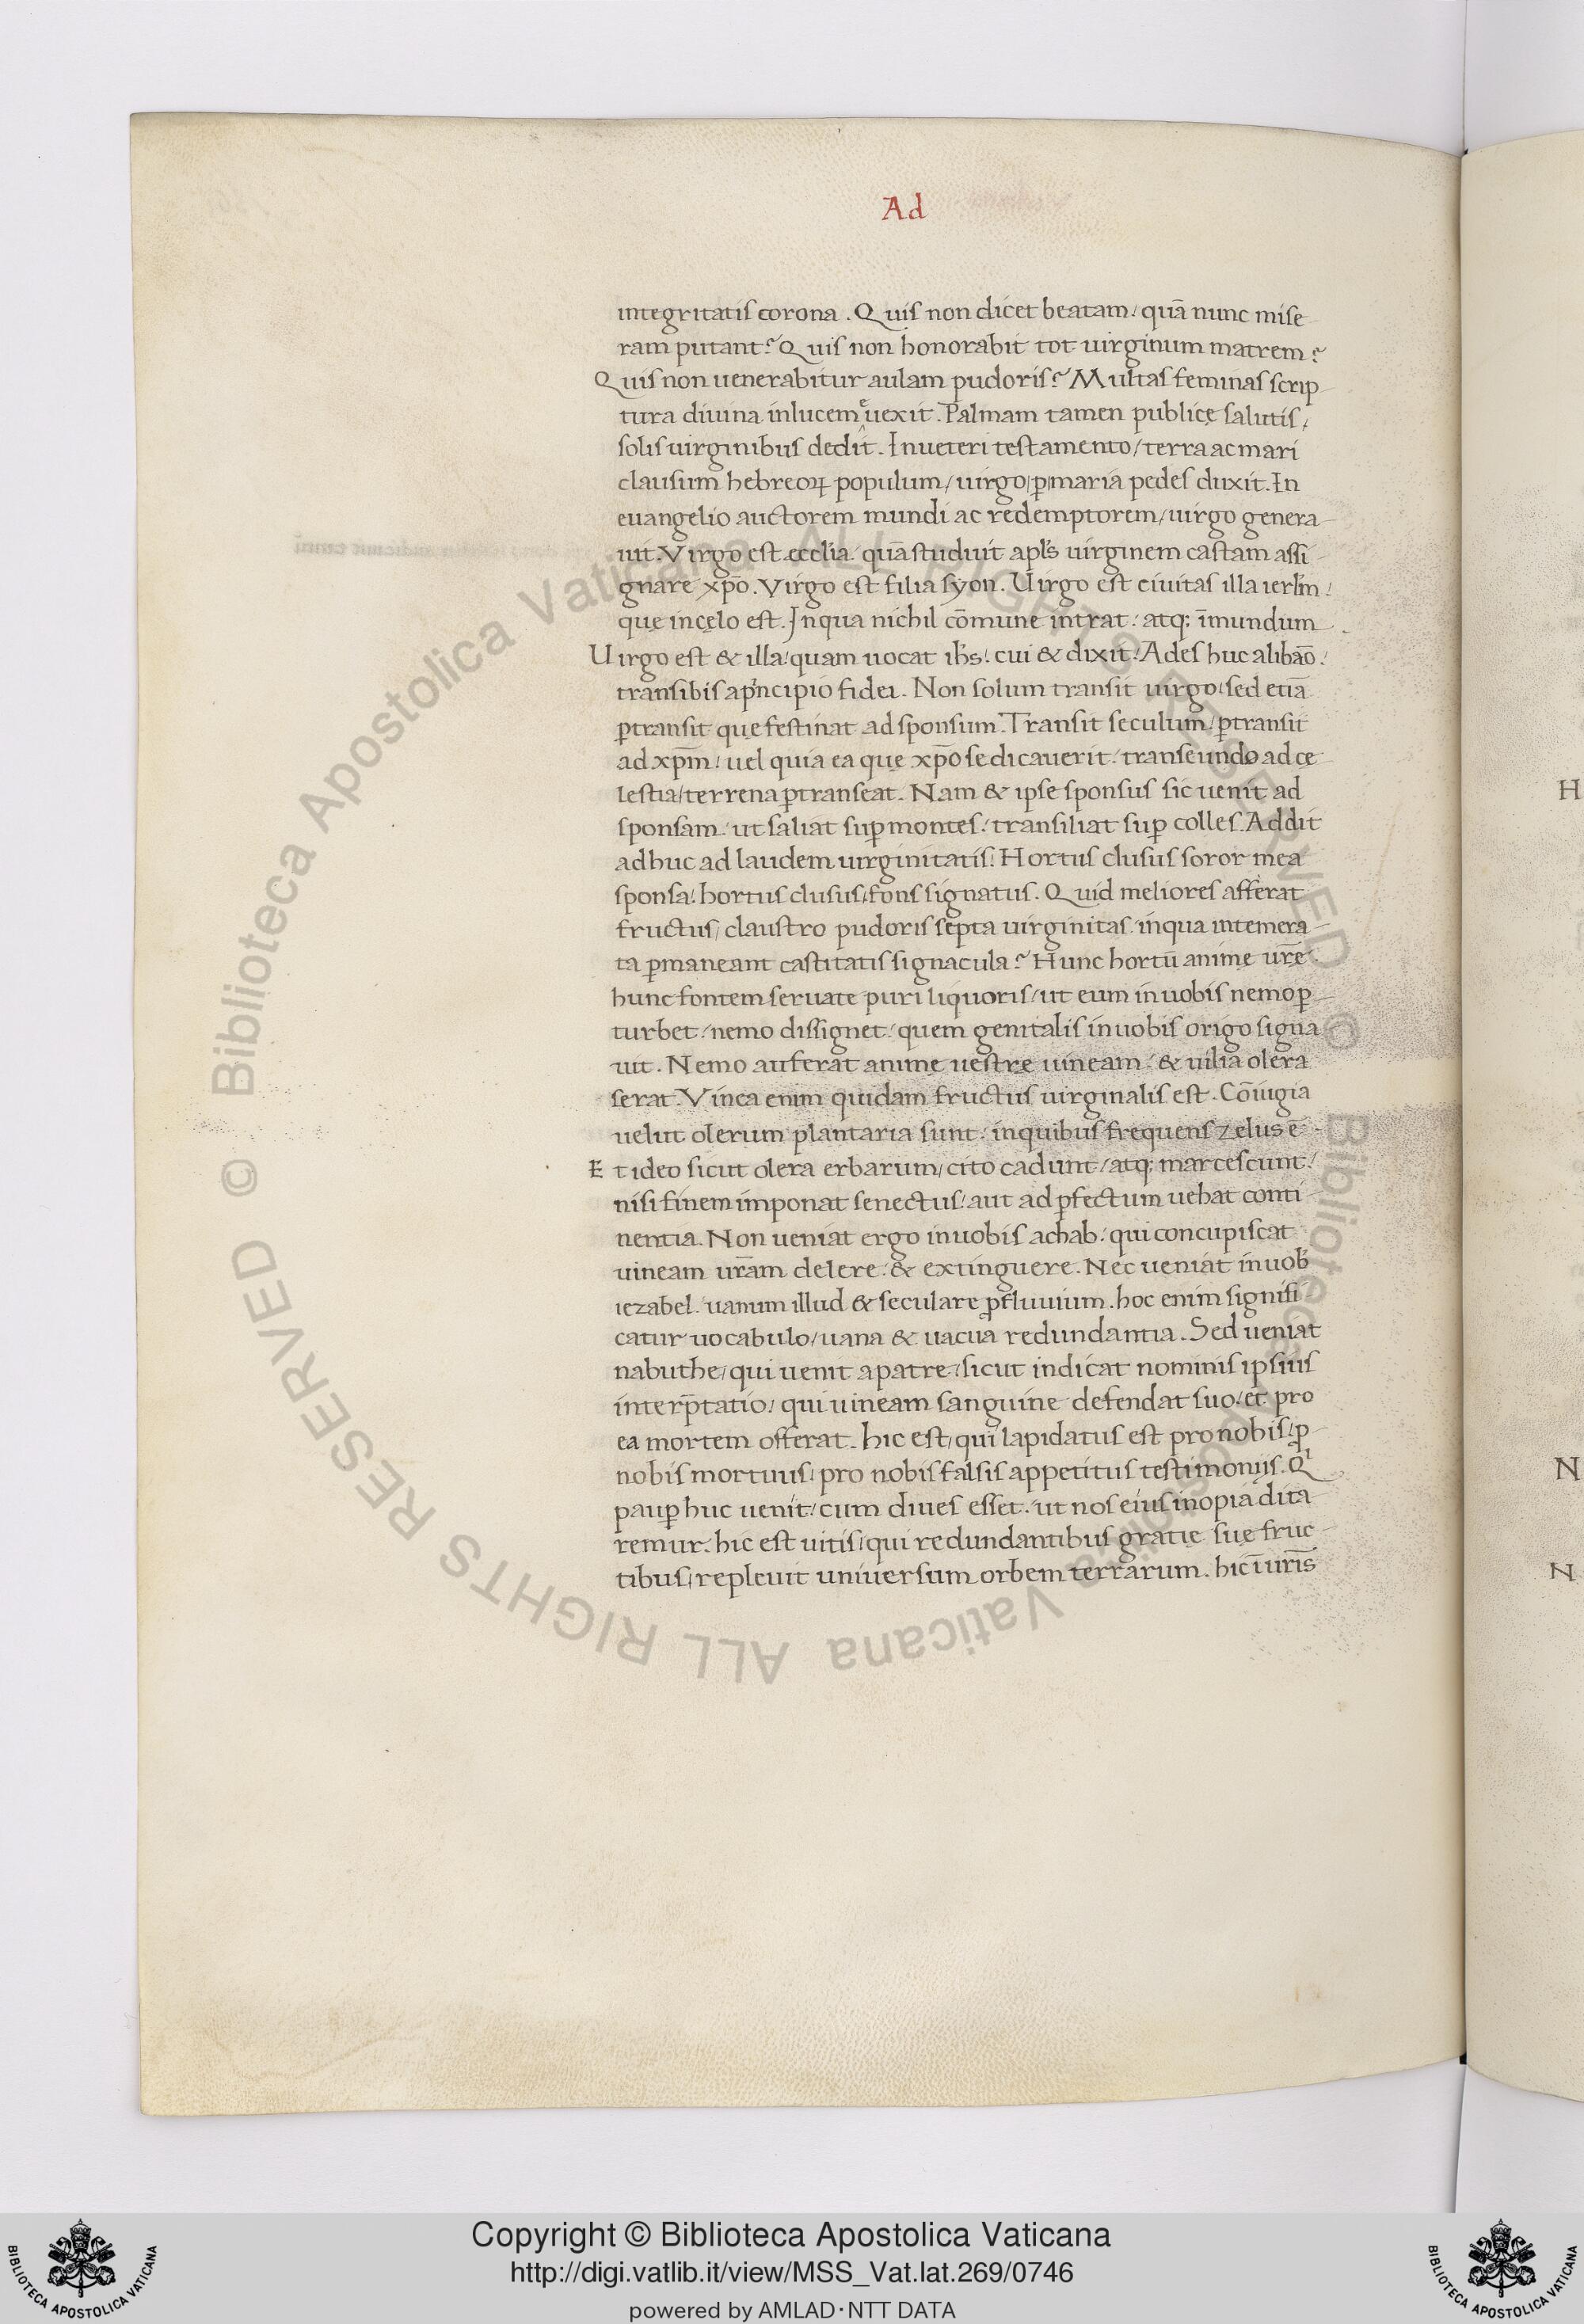 Ad
integritatis corona. Quis non dicet beatam: quā nunc mise
ram putant? Quis non honorabit tot uirginum matrem?
Quis non uenerabitur aulam pudoris? Multas feminas scrip
tura diuina inlucem euexit. Palmam tamen publicę salutis/
solis uirginibus dedit. Inueteri testamento/ terra ac mari
clausum hebreoꝝ populum/ uirgo/ ꝑ maria pedes duxit. In
euangelio auctorem mundi ac redemptorem/ uirgo genera
uit. Virgo est ecclīa: quā studuit apl's uirginem castam assi
gnare xp̄o. Virgo est filia syon. Uirgo est ciuitas illa ierl'm:
quę incęlo est. Inqua nichil cōmune intrat: atq; īmundum
Uirgo est & illa/ quam uocat ih̄s: cui & dixit: Ades huc alibāo:
transibis apͥncipio fidei. Non solum transit uirgo/ sed etiā
ꝑtransit que festinat ad sponsum. Transit seculum/ ꝑtransit
ad xp̄m: uel quia ea quę xp̄o se dicauerit: transeundo ad cę
lestia/ terrena ꝑtranseat. Nam & ipse sponsus sic uenit ad
sponsam: ut saliat suꝑ montes: transiliat suꝑ colles. Addit
adhuc ad laudem uirginitatis: Hortus clusus soror mea
sponsa: hortus clusus/ fons signatus. Quid meliores afferat
fructus/ claustro pudoris septa uirginitas: inqua intemera
ta ꝑmaneant castitatis signacula? Hunc hortū animę ur̄ę:
hunc fontem seruate puri liquoris/ ut eum inuobis nemo ꝑ
turbet: nemo dissignet: quem genitalis inuobis origo signa
uit. Nemo auferat animę uestrę uineam: & uilia olera
serat. Vinea enim quidam fructus uirginalis est. Cōiugia
uelut olerum plantaria sunt: inquibus frequens zelus ē.
Et ideo sicut olera erbarum/ cito cadunt/ atq; marcescunt:
nisi finem imponat senectus: aut ad ꝑfectum uehat conti
nentia. Non ueniat ergo inuobis achab: qui concupiscat
uineam ur̄am delere: & extinguere. Nec ueniat inuob'
iezabel: uanum illud & seculare ꝓfluuium. hoc enim signifi
catur uocabulo/ uana & uacua redundantia. Sed ueniat
nabuthe/ qui uenit apatre: sicut indicat nominis ipsius
interp̄tatio/ qui uineam sanguine defendat suo: et pro
ea mortem offerat. hic est/ qui lapidatus est pro nobis/ ꝓ
nobis mortuus/ pro nobis falsis appetitus testimoniis. Qͥ
pauꝑ huc uenit: cum diues esset: ut nos eius inopia dita
remur. hic est uitis/ qui redundantibus gratię suę fruc
tibus/ repleuit uniuersum orbem terrarum. hic ī ur̄is
H
N
N
© Biblioteca Apostolica Vaticana ALL RIGHTS RESERVED
© Biblioteca Apostolica Vaticana ALL RIGHTS RESERVED
Copyright © Biblioteca Apostolica Vaticana
http://digi.vatlib.it/view/MSS_Vat.lat.269/0746
powered by AMLAD·NTT DATA
BIBLIOTECA APOSTOLICA VATICANA
BIBLIOTECA APOSTOLICA VATICANA